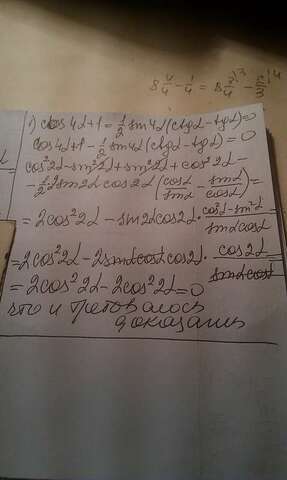 8 4/4 - 1/4 = 8
1) cos 4α+1 = 1/2 sin4α(ctgα - tgα)=0
cos 4α+1 - 1/2 sin4α(ctgα - tgα) = 0
cos²2α - sin²2α + sin²2α + cos²2α -
- 1/2 2sin2α cos2α (cosα/sinα - sinα/cosα) =
= 2cos²2α - sin2α cos2α · cos²α - sin²α / sinα cosα
= 2cos²2α - 2sinα cosα cos2α · cos2α / sinα cosα =
= 2cos²2α - 2cos²2α = 0
что и требовалось
доказать